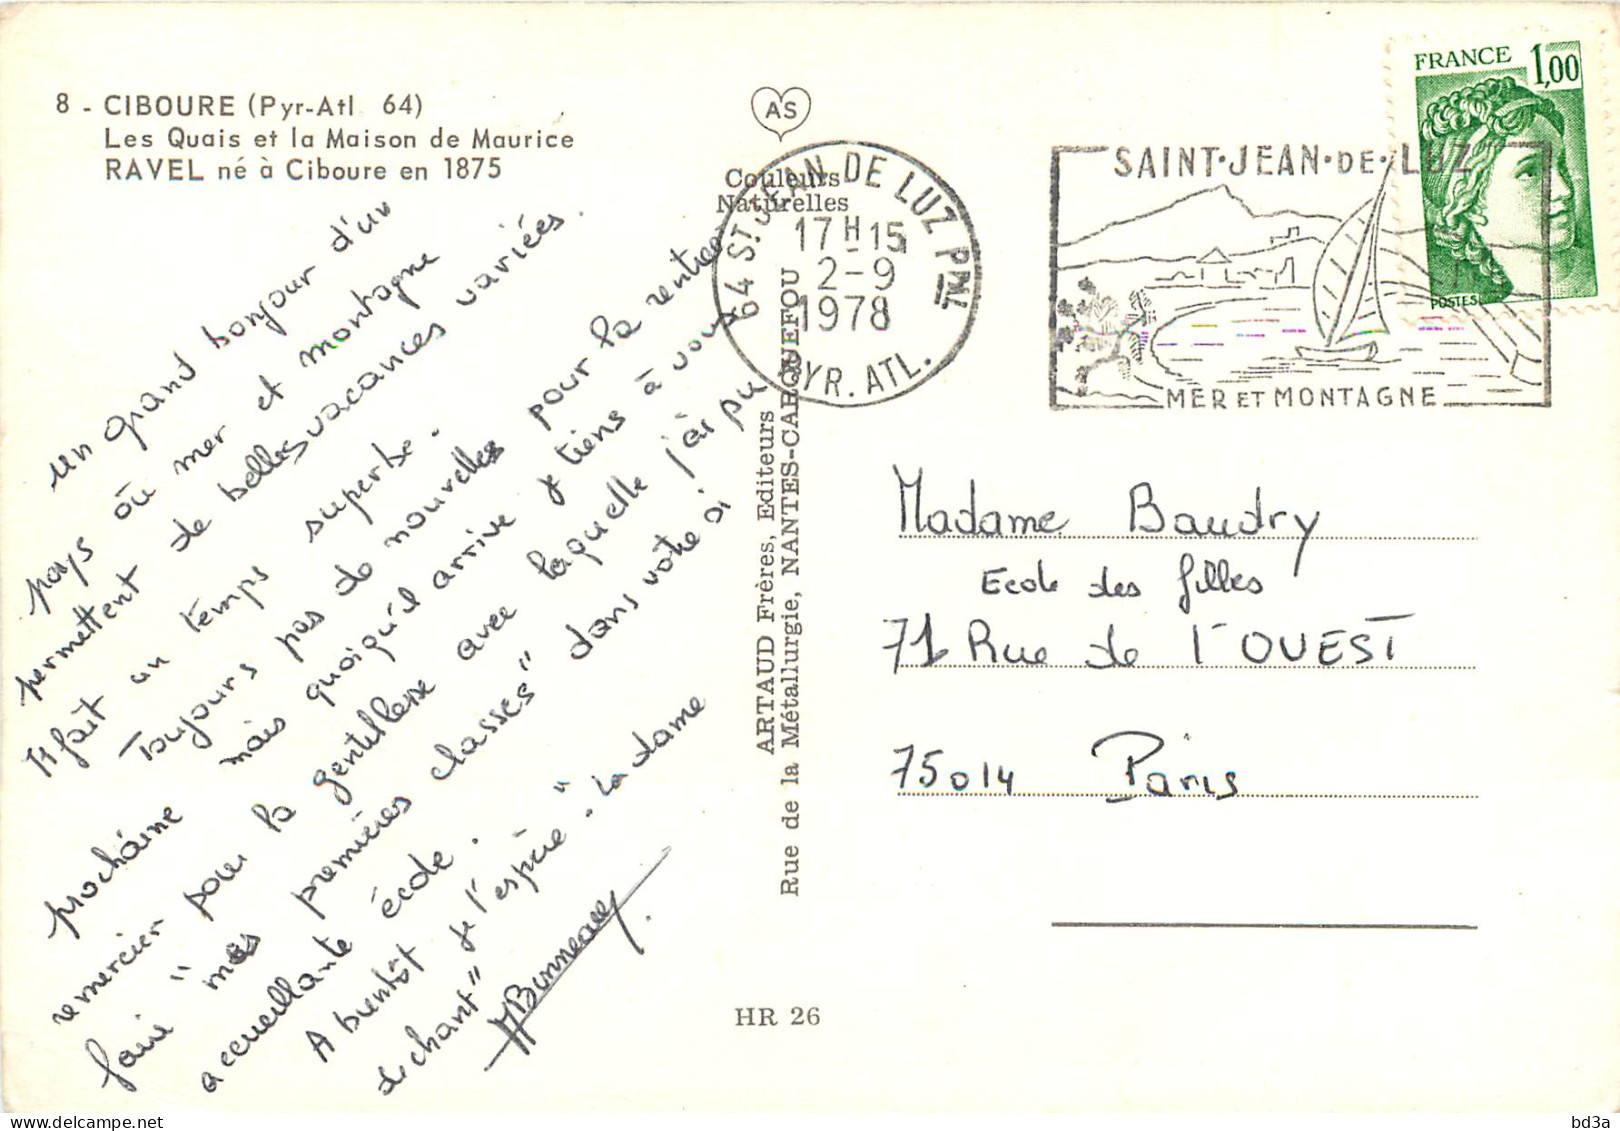 8 - CIBOURE (Pyr-Atl. 64)
Les Quais et la Maison de Maurice
RAVEL né à Ciboure en 1875
un grand bonjour d'un
pays où mer et montagne
permettent de belles vacances variées.
Il fait un temps superbe.
Toujours pas de nouvelles pour la rentrée
prochaine mais quoiqu'il arrive je tiens à vous
remercier pour la gentillesse avec laquelle j'ai pu
faire "mes premières classes" dans votre si
accueillante école.
A bientôt je l'espère. "La dame
de chant"
Bonneau
AS
Couleurs
Naturelles
ARTAUD Frères, Editeurs
Rue de la Métallurgie, NANTES-CARQUEFOU
HR 26
64 ST JEAN DE LUZ PPAL
17 H 15
2-9
1978
PYR. ATL.
SAINT·JEAN·DE·LUZ
MER ET MONTAGNE
FRANCE 1,00
POSTES
Madame Baudry
Ecole des filles
71 Rue de l'OUEST
75014 Paris
delcampe.net
bd3a